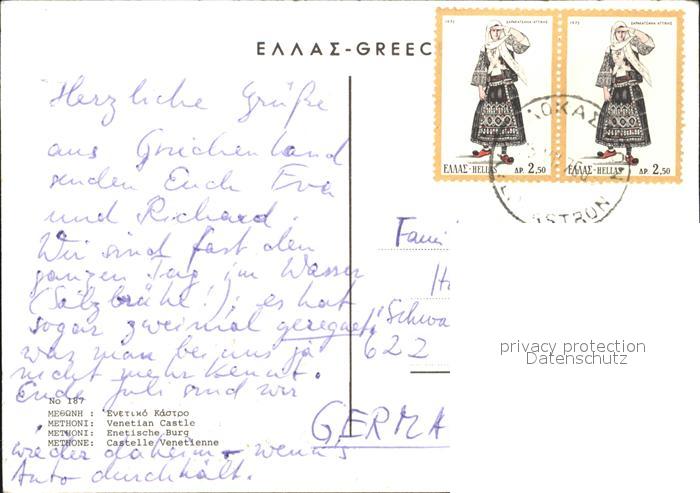 ΕΛΛΑΣ-GREEC
1972
ΣΑΡΑΚΑΤΣΑΝΑ ΑΤΤΙΚΗΣ
ΕΛΛΑΣ-HELLAS ΔΡ. 2,50
1972
ΣΑΡΑΚΑΤΣΑΝΑ ΑΤΤΙΚΗΣ
ΕΛΛΑΣ-HELLAS ΔΡ. 2,50
Herzliche Grüße
aus Griechenland
senden Euch Eva
und Richard.
Wir sind fast den
ganzen Tag im Wasser
(Salzbrühe!); es hat
sogar zweimal geregnet,
was man bei uns ja
nicht mehr kennt.
Ende Juli sind wir
wieder daheim – wenn's
Auto durchhält.
Fami
Schwa
622
GERMA
No 187
ΜΕΘΩΝΗ : Ἐνετικό Κάστρο
METHONI: Venetian Castle
METHONI: Enetische Burg
METHONE: Castelle Venetienne
privacy protection
Datenschutz